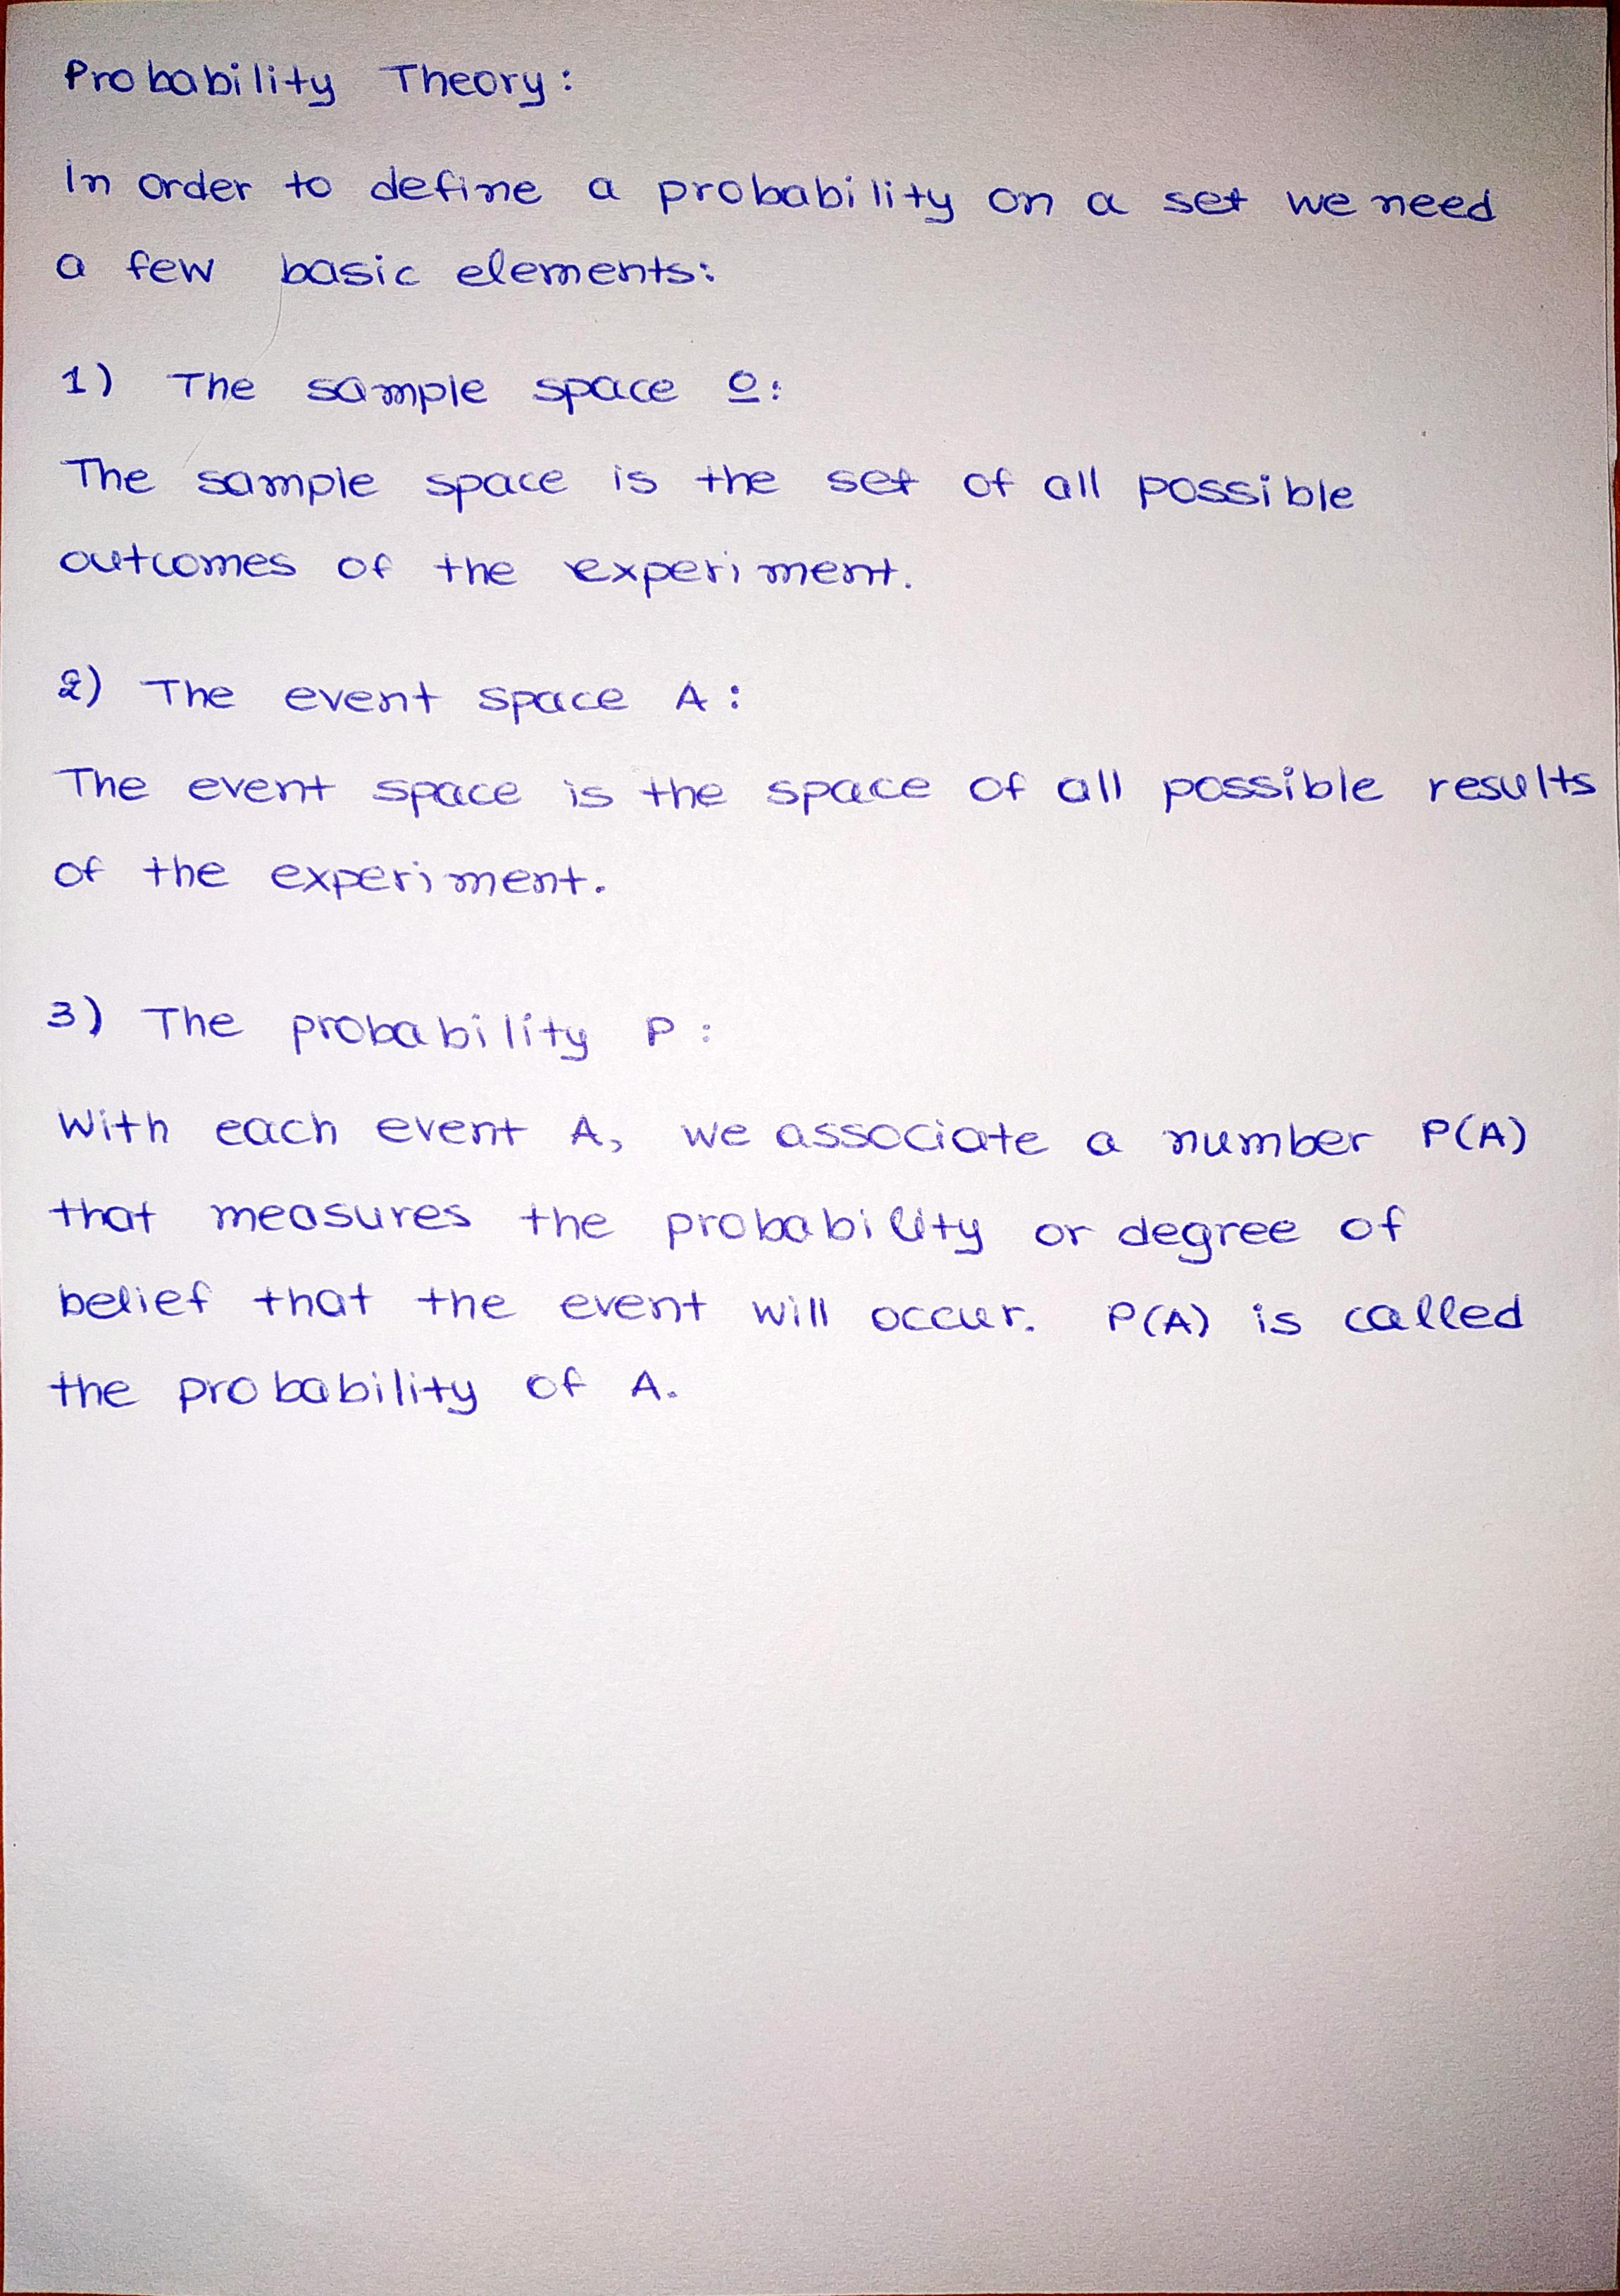 Probability Theory:
In order to define a probability on a set we need
a few basic elements:
1) The sample space Ω:
The sample space is the set of all possible
outcomes of the experiment.
2) The event space A:
The event space is the space of all possible results
of the experiment.
3) The probability P:
With each event A, we associate a number P(A)
that measures the probability or degree of
belief that the event will occur. P(A) is called
the probability of A.